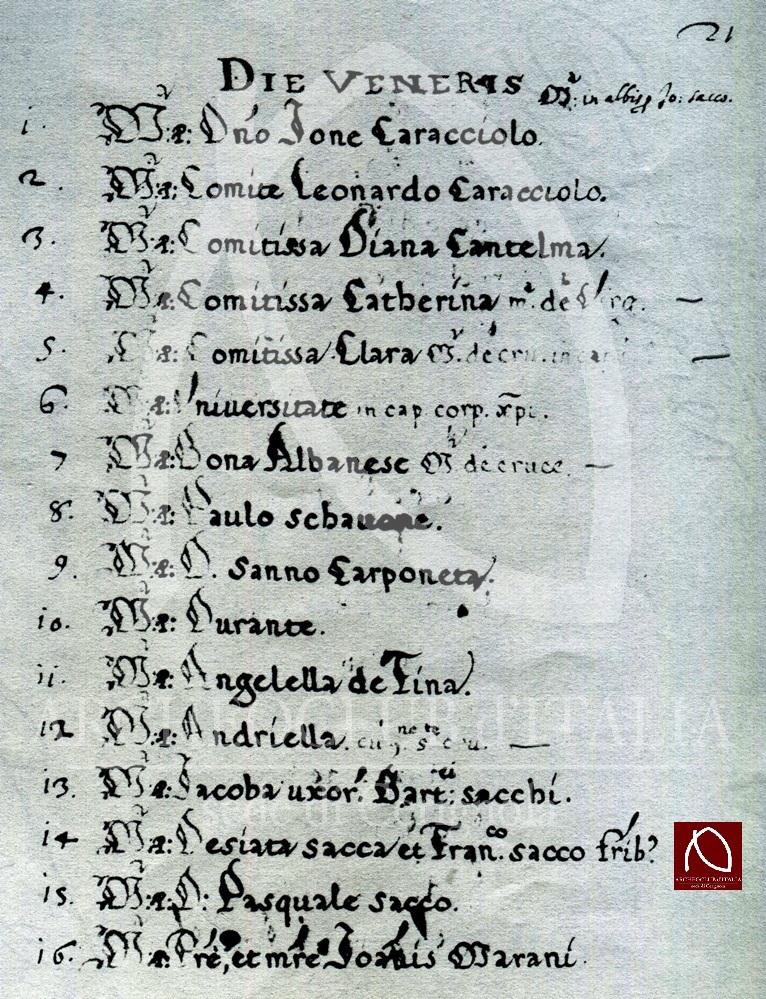 21
DIE VENERIS
M: in albis p Jo: sacco.
1. M æ: Dn̄o Ione Caracciolo.
2. M æ: Comite Leonardo Caracciolo.
3. M æ: Comitissa Diana Cantelma.
4. M æ: Comitissa Catherina m. de —
5. M æ: Comitissa Clara M. de cru. in —
6. M æ: Vniuersitate in cap corp. x̄pi.
7 M æ: Bona Albanese M de cruce. —
8. M æ: Paulo schauone.
9. M æ: D. Sanno Carponeta.
10. M æ: Durante.
11. M æ: Angelella de Tina.
12 M æ: Andriella. —
13. M æ: Iacoba uxor. Bart: sacchi.
14 M æ: Desiata sacca et Fran.co sacco frib?
15. M æ: D: Pasquale sacco.
16. M æ: Prē, et mrē Ioanis Marani.
ARCHEOCLUB D'ITALIA
ARCHEOCLUB D'ITALIA